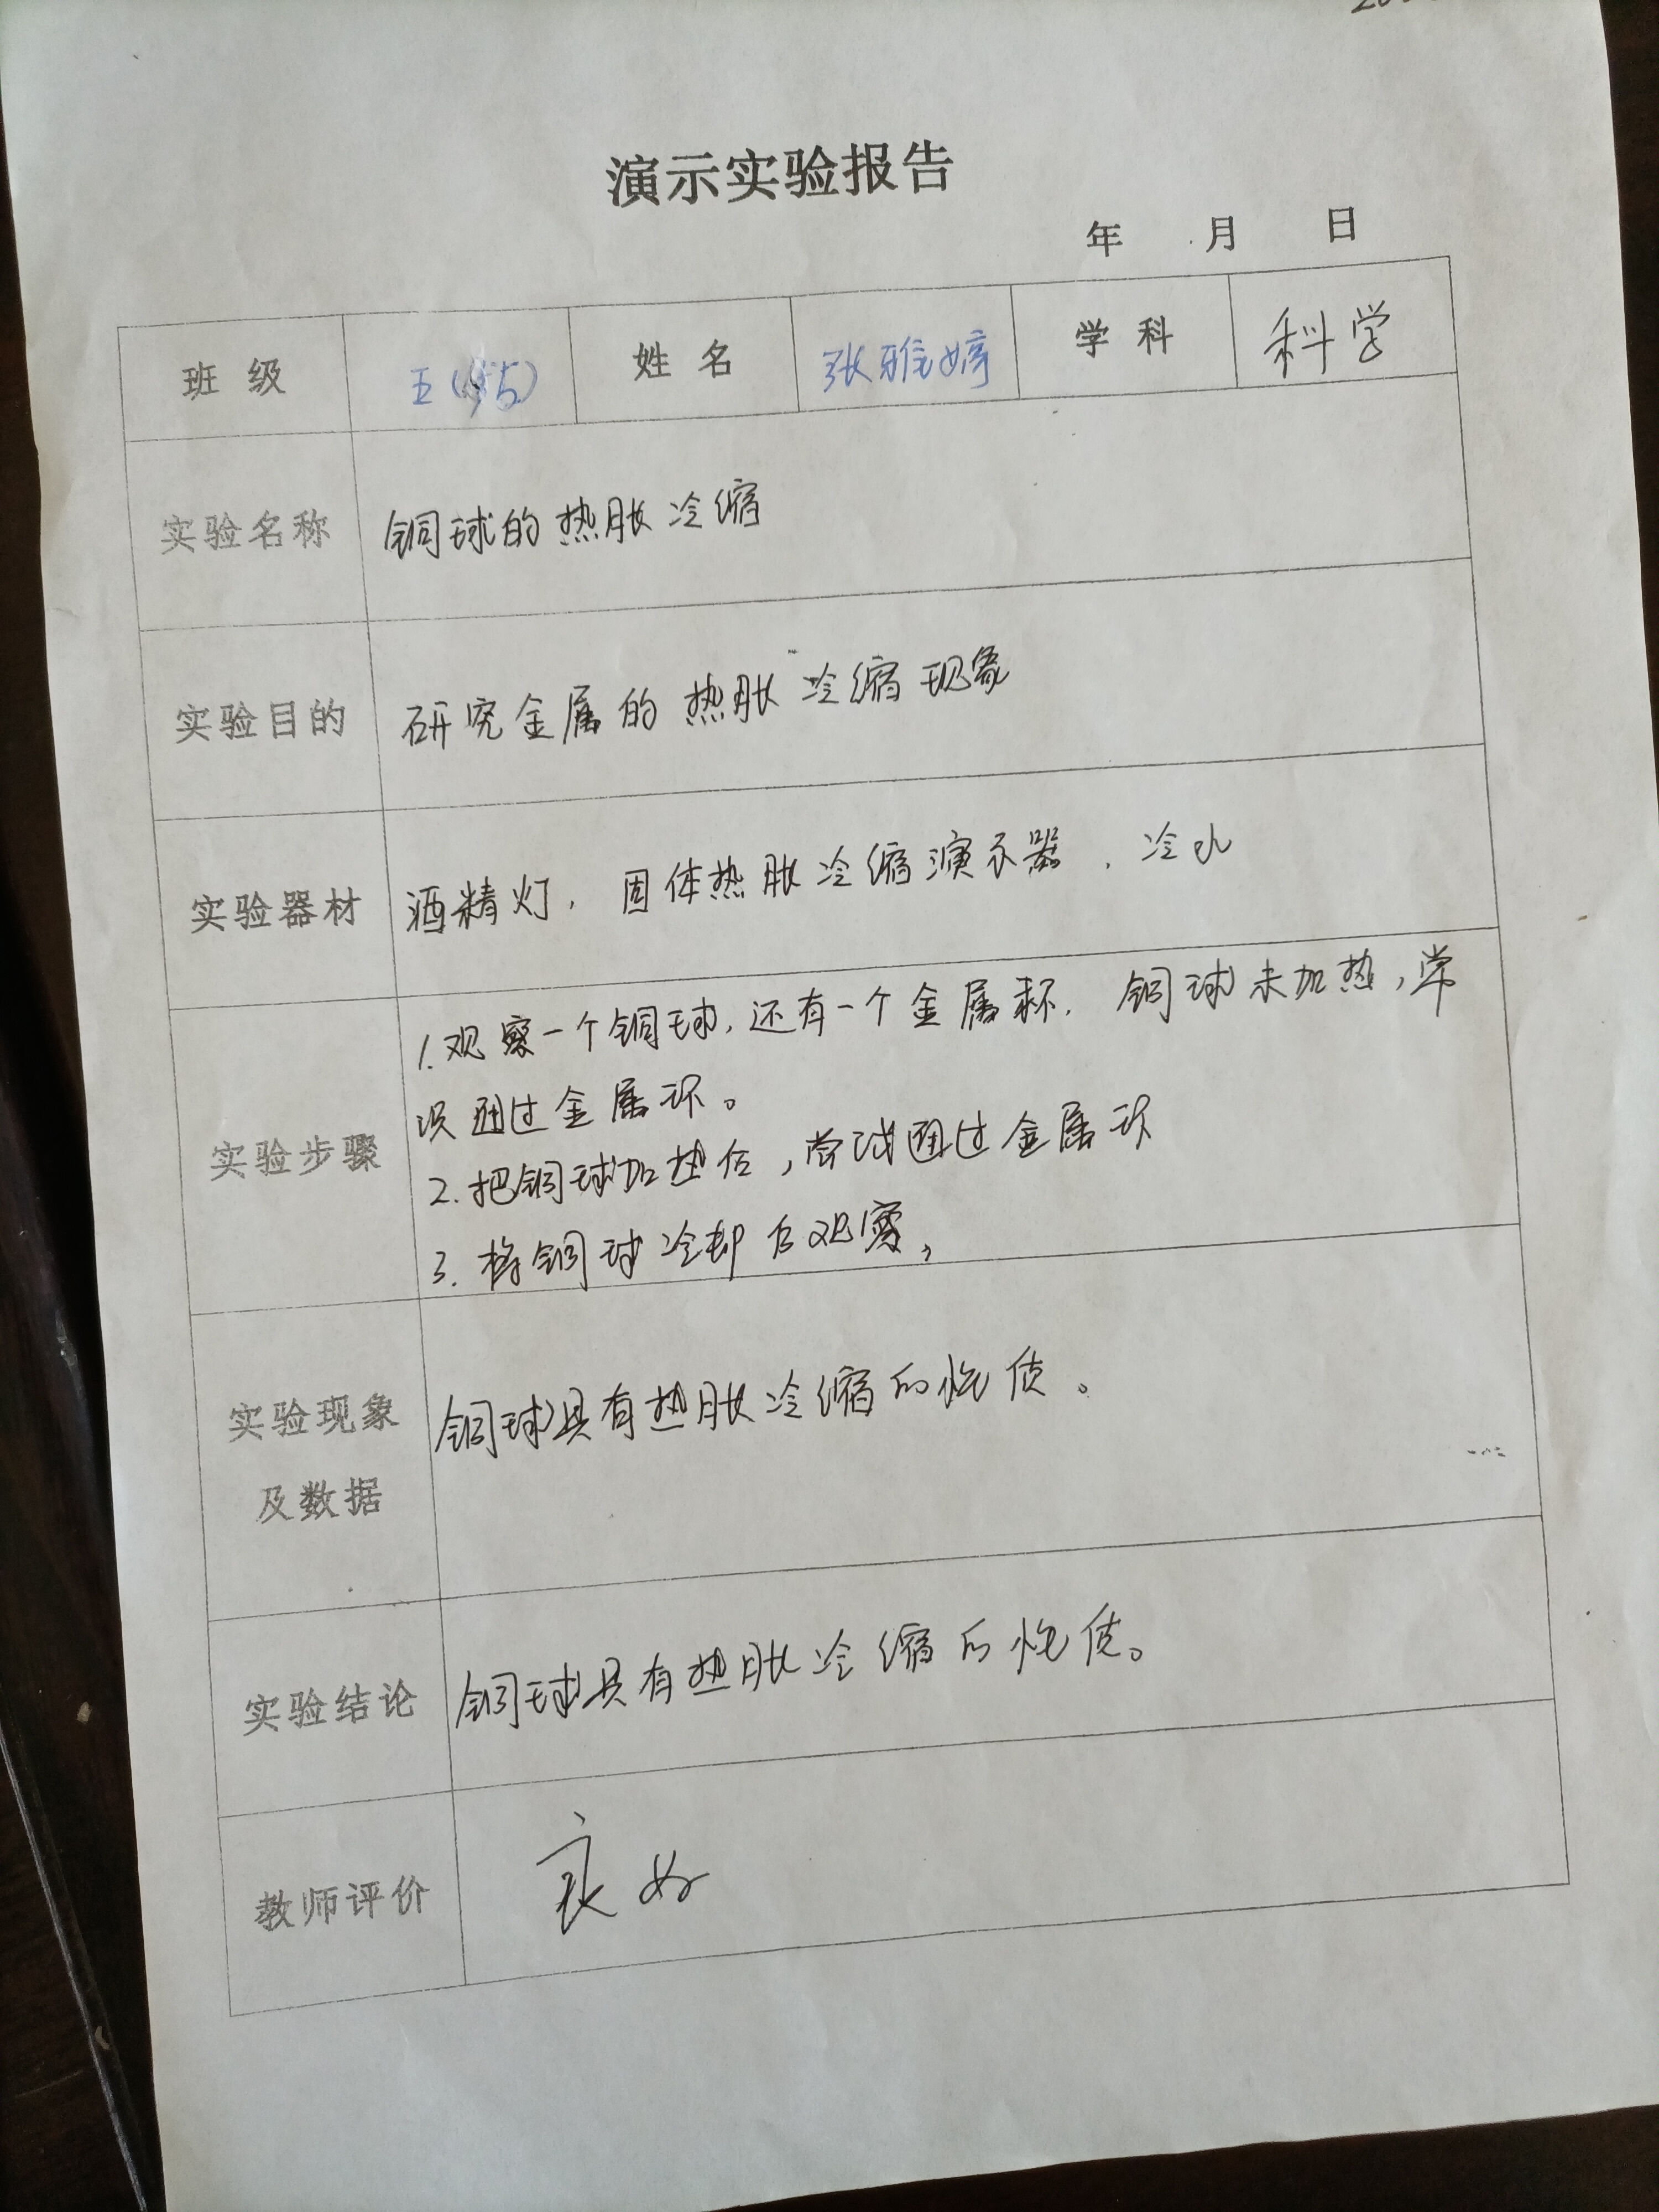 演示实验报告
年 月 日
班 级 五(5) 姓 名 张雅婷 学 科 科学
实验名称 铜球的热胀冷缩
实验目的 研究金属的热胀冷缩现象
实验器材 酒精灯，固体热胀冷缩演示器，冷水
实验步骤
1.观察一个铜球,还有一个金属环. 铜球未加热,尝
试通过金属环。
2.把铜球加热后,尝试通过金属环
3.将铜球冷却后观察,
实验现象
及数据
铜球具有热胀冷缩的性质。
实验结论 铜球具有热胀冷缩的性质。
教师评价 良好